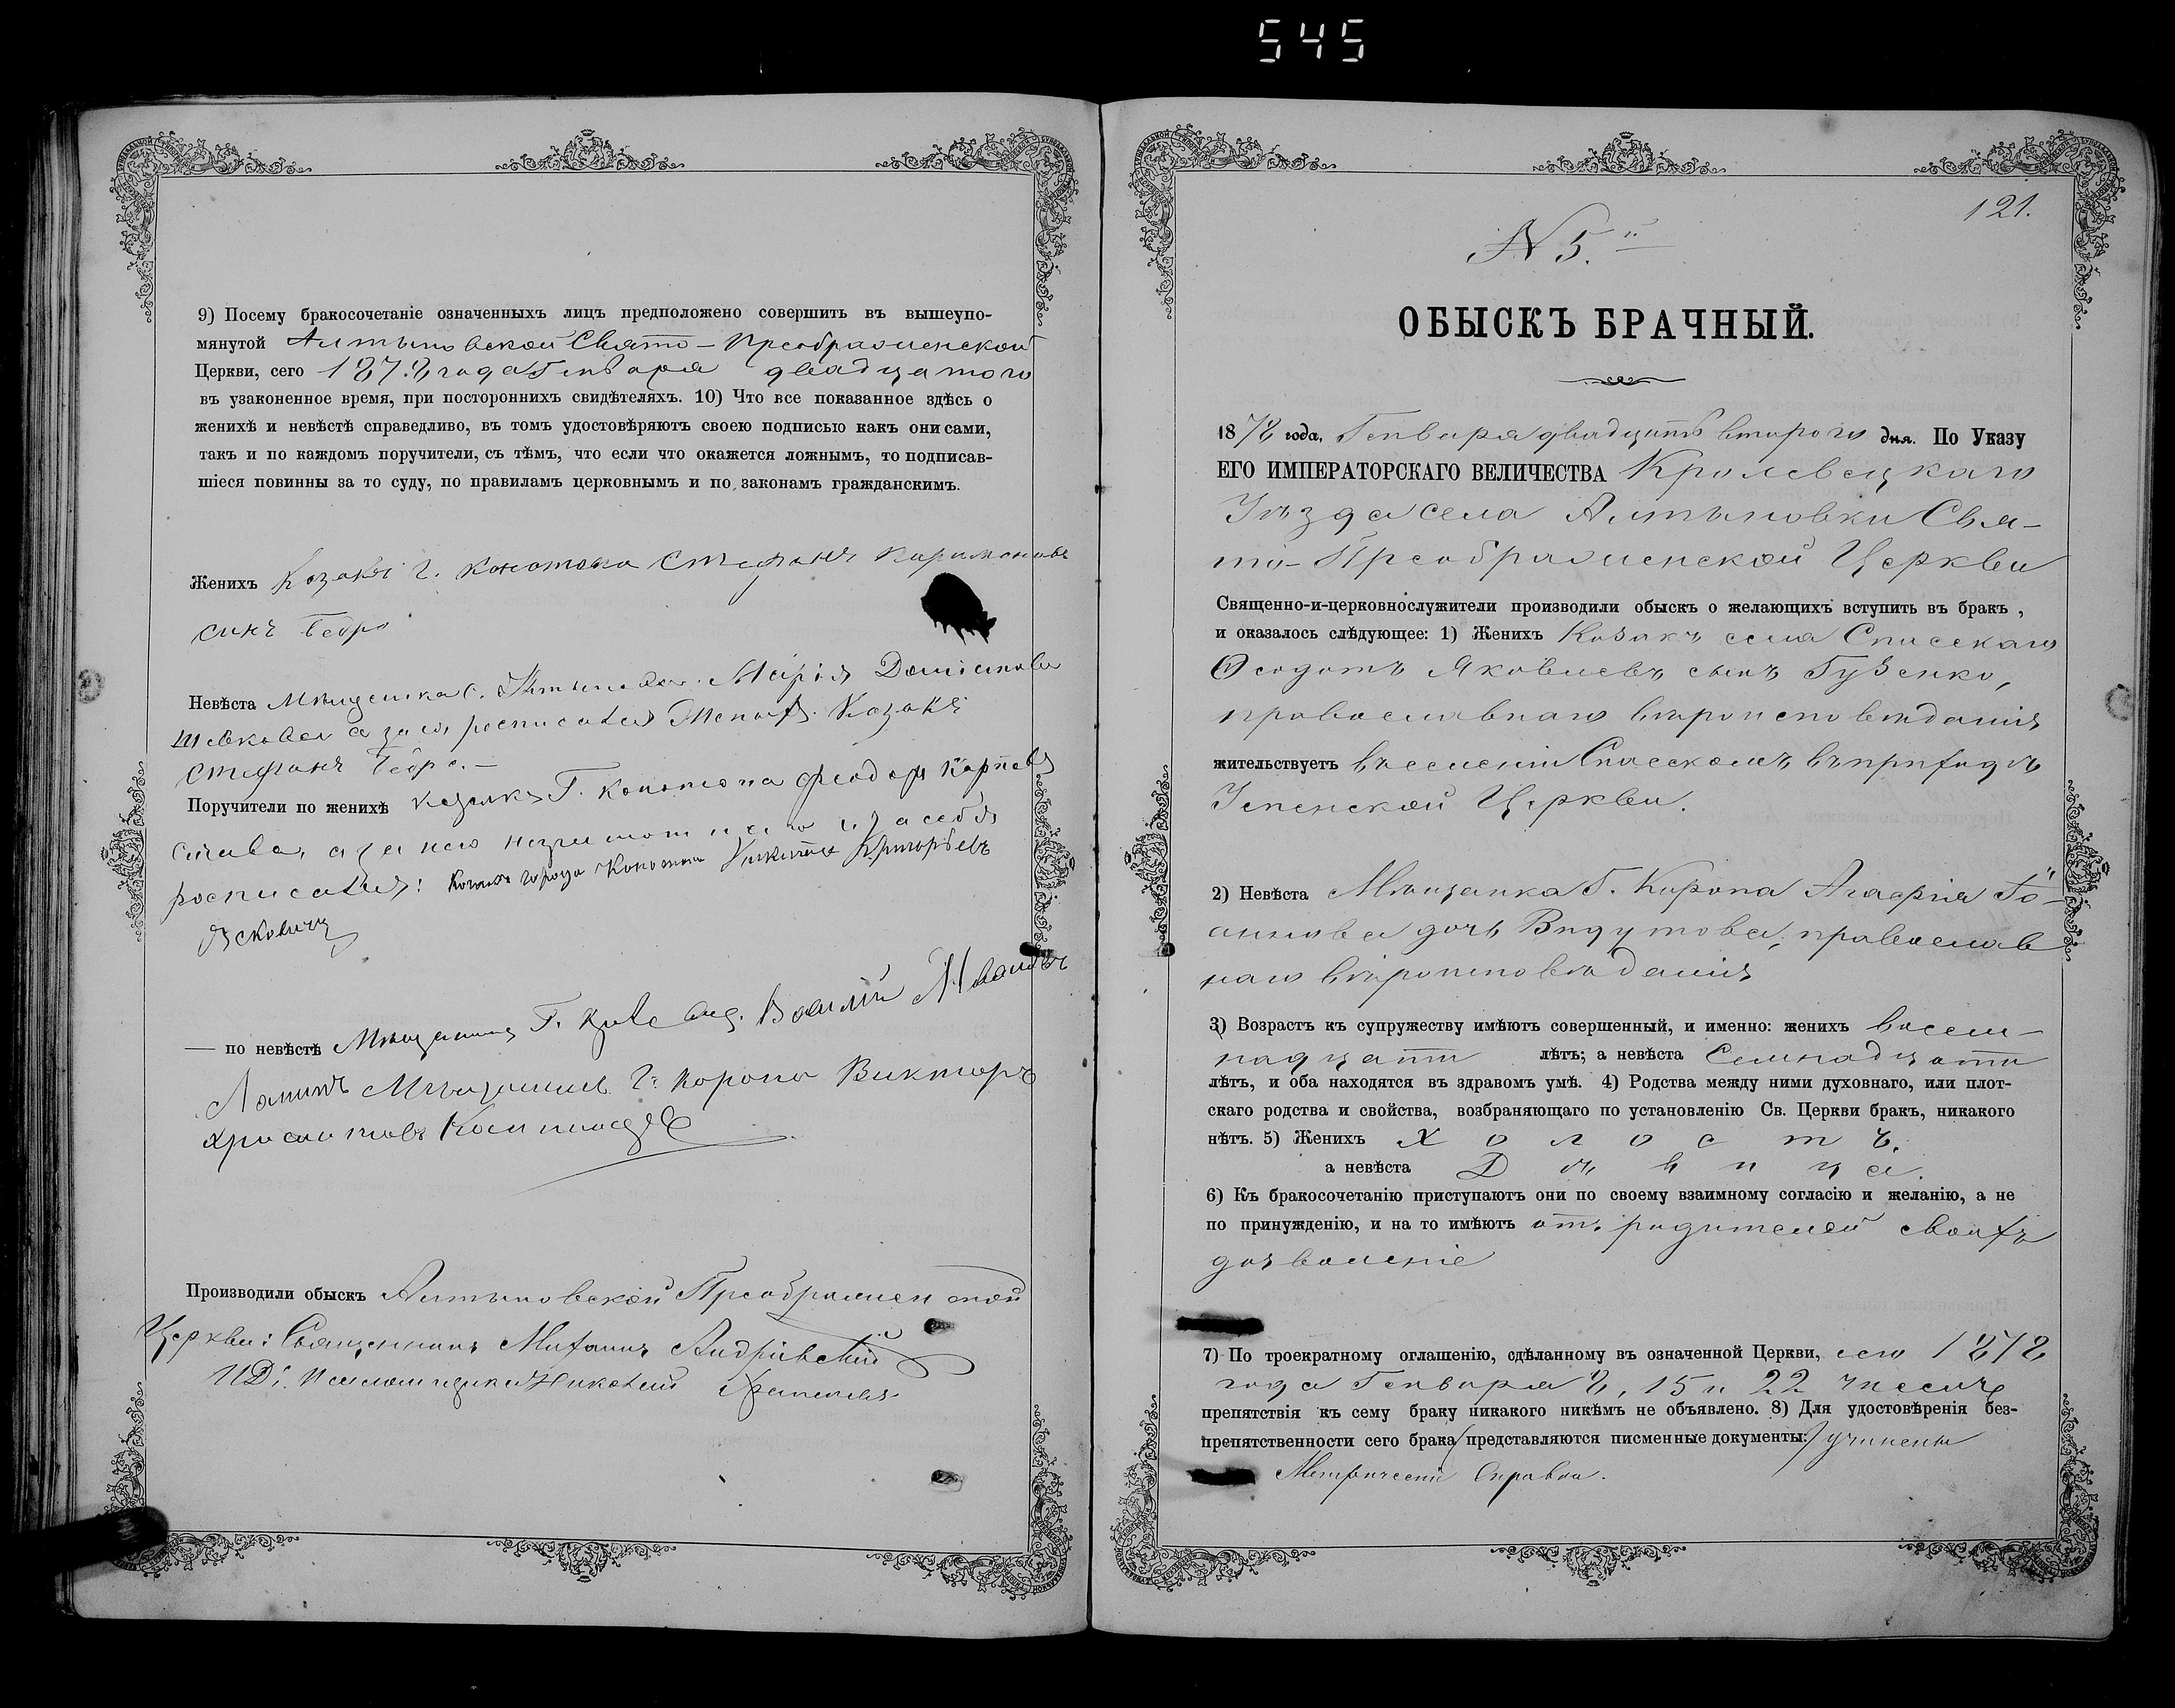 545
9) Посему бракосочетаніе означенныхъ лицъ предположено совершить въ вышеупо-
мянутой Алтыновской Свято-Преображенской
Церкви, сего 1878 года Генваря двадцатого
въ узаконенное время, при постороннихъ свидѣтеляхъ. 10) Что все показанное здѣсь о
женихѣ и невѣстѣ справедливо, въ томъ удостовѣряютъ своею подписью какъ они сами,
такъ и по каждомъ поручители, съ тѣмъ, что если что окажется ложнымъ, то подписав-
шіеся повинны за то суду, по правиламъ церковнымъ и по законамъ гражданскимъ.
Женихъ Козакъ г. Конотопа Стефанъ
синъ
Невѣста Мѣщанка с. Марія
а за росписался Козакъ
Стефанъ
Поручители по женихѣ козакъ Г. Конотопа Феодоръ
а за него и за себя
росписался: Козакъ города Конотопа Никита Григорьевъ
— по невѣстѣ Мѣщанинъ Г. Василій
Мѣщанинъ г. Коропа Викторъ
Производили обыскъ Алтыновской Преображенской
Церкви: Священникъ Михаилъ Андріевскій
И Д. Псаломщика Николай
121.
N 5.й
ОБЫСКЪ БРАЧНЫЙ.
1878 года, Генваря двадцать второго дня. По Указу
ЕГО ИМПЕРАТОРСКАГО ВЕЛИЧЕСТВА Кролевецкаго
Уѣзда села Алтыновки Свя-
то-Преображенской Церкви
Священно-и-церковнослужители производили обыскъ о желающихъ вступить въ бракъ,
и оказалось слѣдующее: 1) Женихъ Козакъ села Спасскаго
Ѳеодотъ Яковлевъ сынъ Гузенко,
православнаго вѣроисповѣданія
жительствуетъ въ селеніи Спасскомъ въ приходѣ
Успенской Церкви.
2) Невѣста Мѣщанка Г. Коропа Агафія Іо-
аннова дочь православ
наго вѣроисповѣданія
3) Возрастъ къ супружеству имѣютъ совершенный, и именно: женихъ восем-
надцати лѣтъ; а невѣста Семнадцати
лѣтъ, и оба находятся въ здравомъ умѣ. 4) Родства между ними духовнаго, или плот-
скаго родства и свойства, возбраняющаго по установленію Св. Церкви бракъ, никакого
нѣтъ. 5) Женихъ Холостъ.
а невѣста Дѣвица.
6) Къ бракосочетанію приступаютъ они по своему взаимному согласію и желанію, а не
по принужденію, и на то имѣютъ отъ родителей своихъ
дозволеніе
7) По троекратному оглашенію, сдѣланному въ означенной Церкви, сего 1878
года Генваря 8, 15 и 22 чиселъ
препятствія къ сему браку никакого никѣмъ не объявлено. 8) Для удостовѣренія без-
препятственности сего брака представляются писменные документы: учинены
Метрическіе Справки.